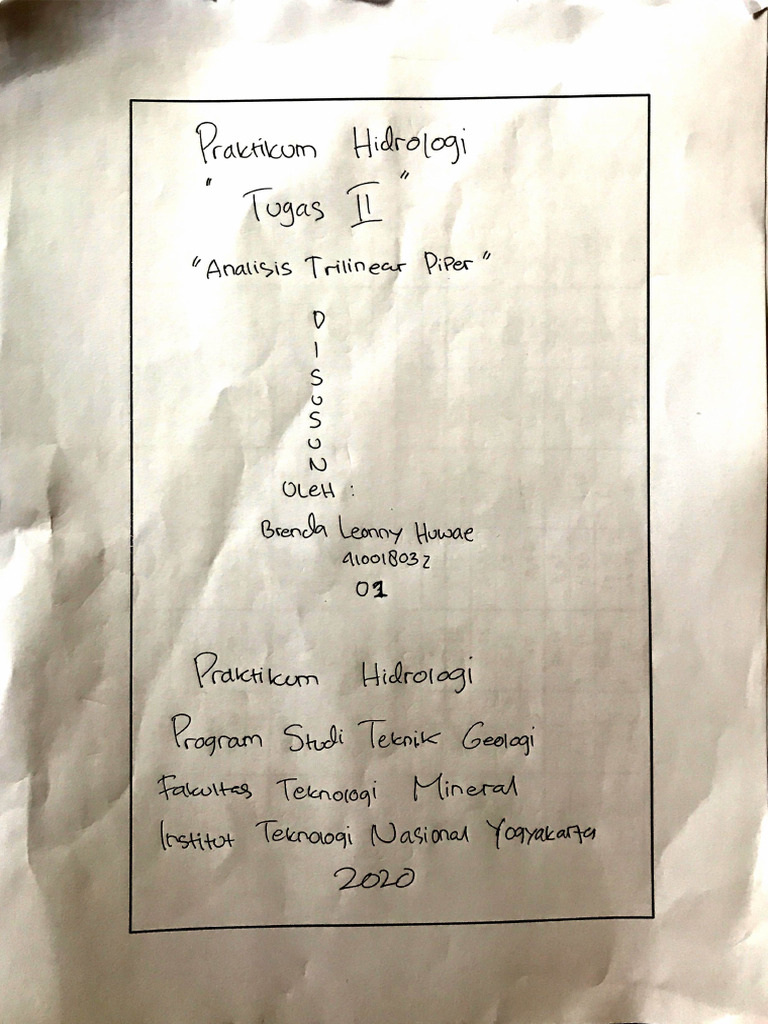 Praktikum Hidrologi
" Tugas II "
"Analisis Trilinear Piper"
D
I
S
U
S
U
N
OLEH :
Brenda Leonny Huwae
410018032
01
Praktikum Hidrologi
Program Studi Teknik Geologi
Fakultas Teknologi Mineral
Institut Teknologi Nasional Yogyakarta
2020